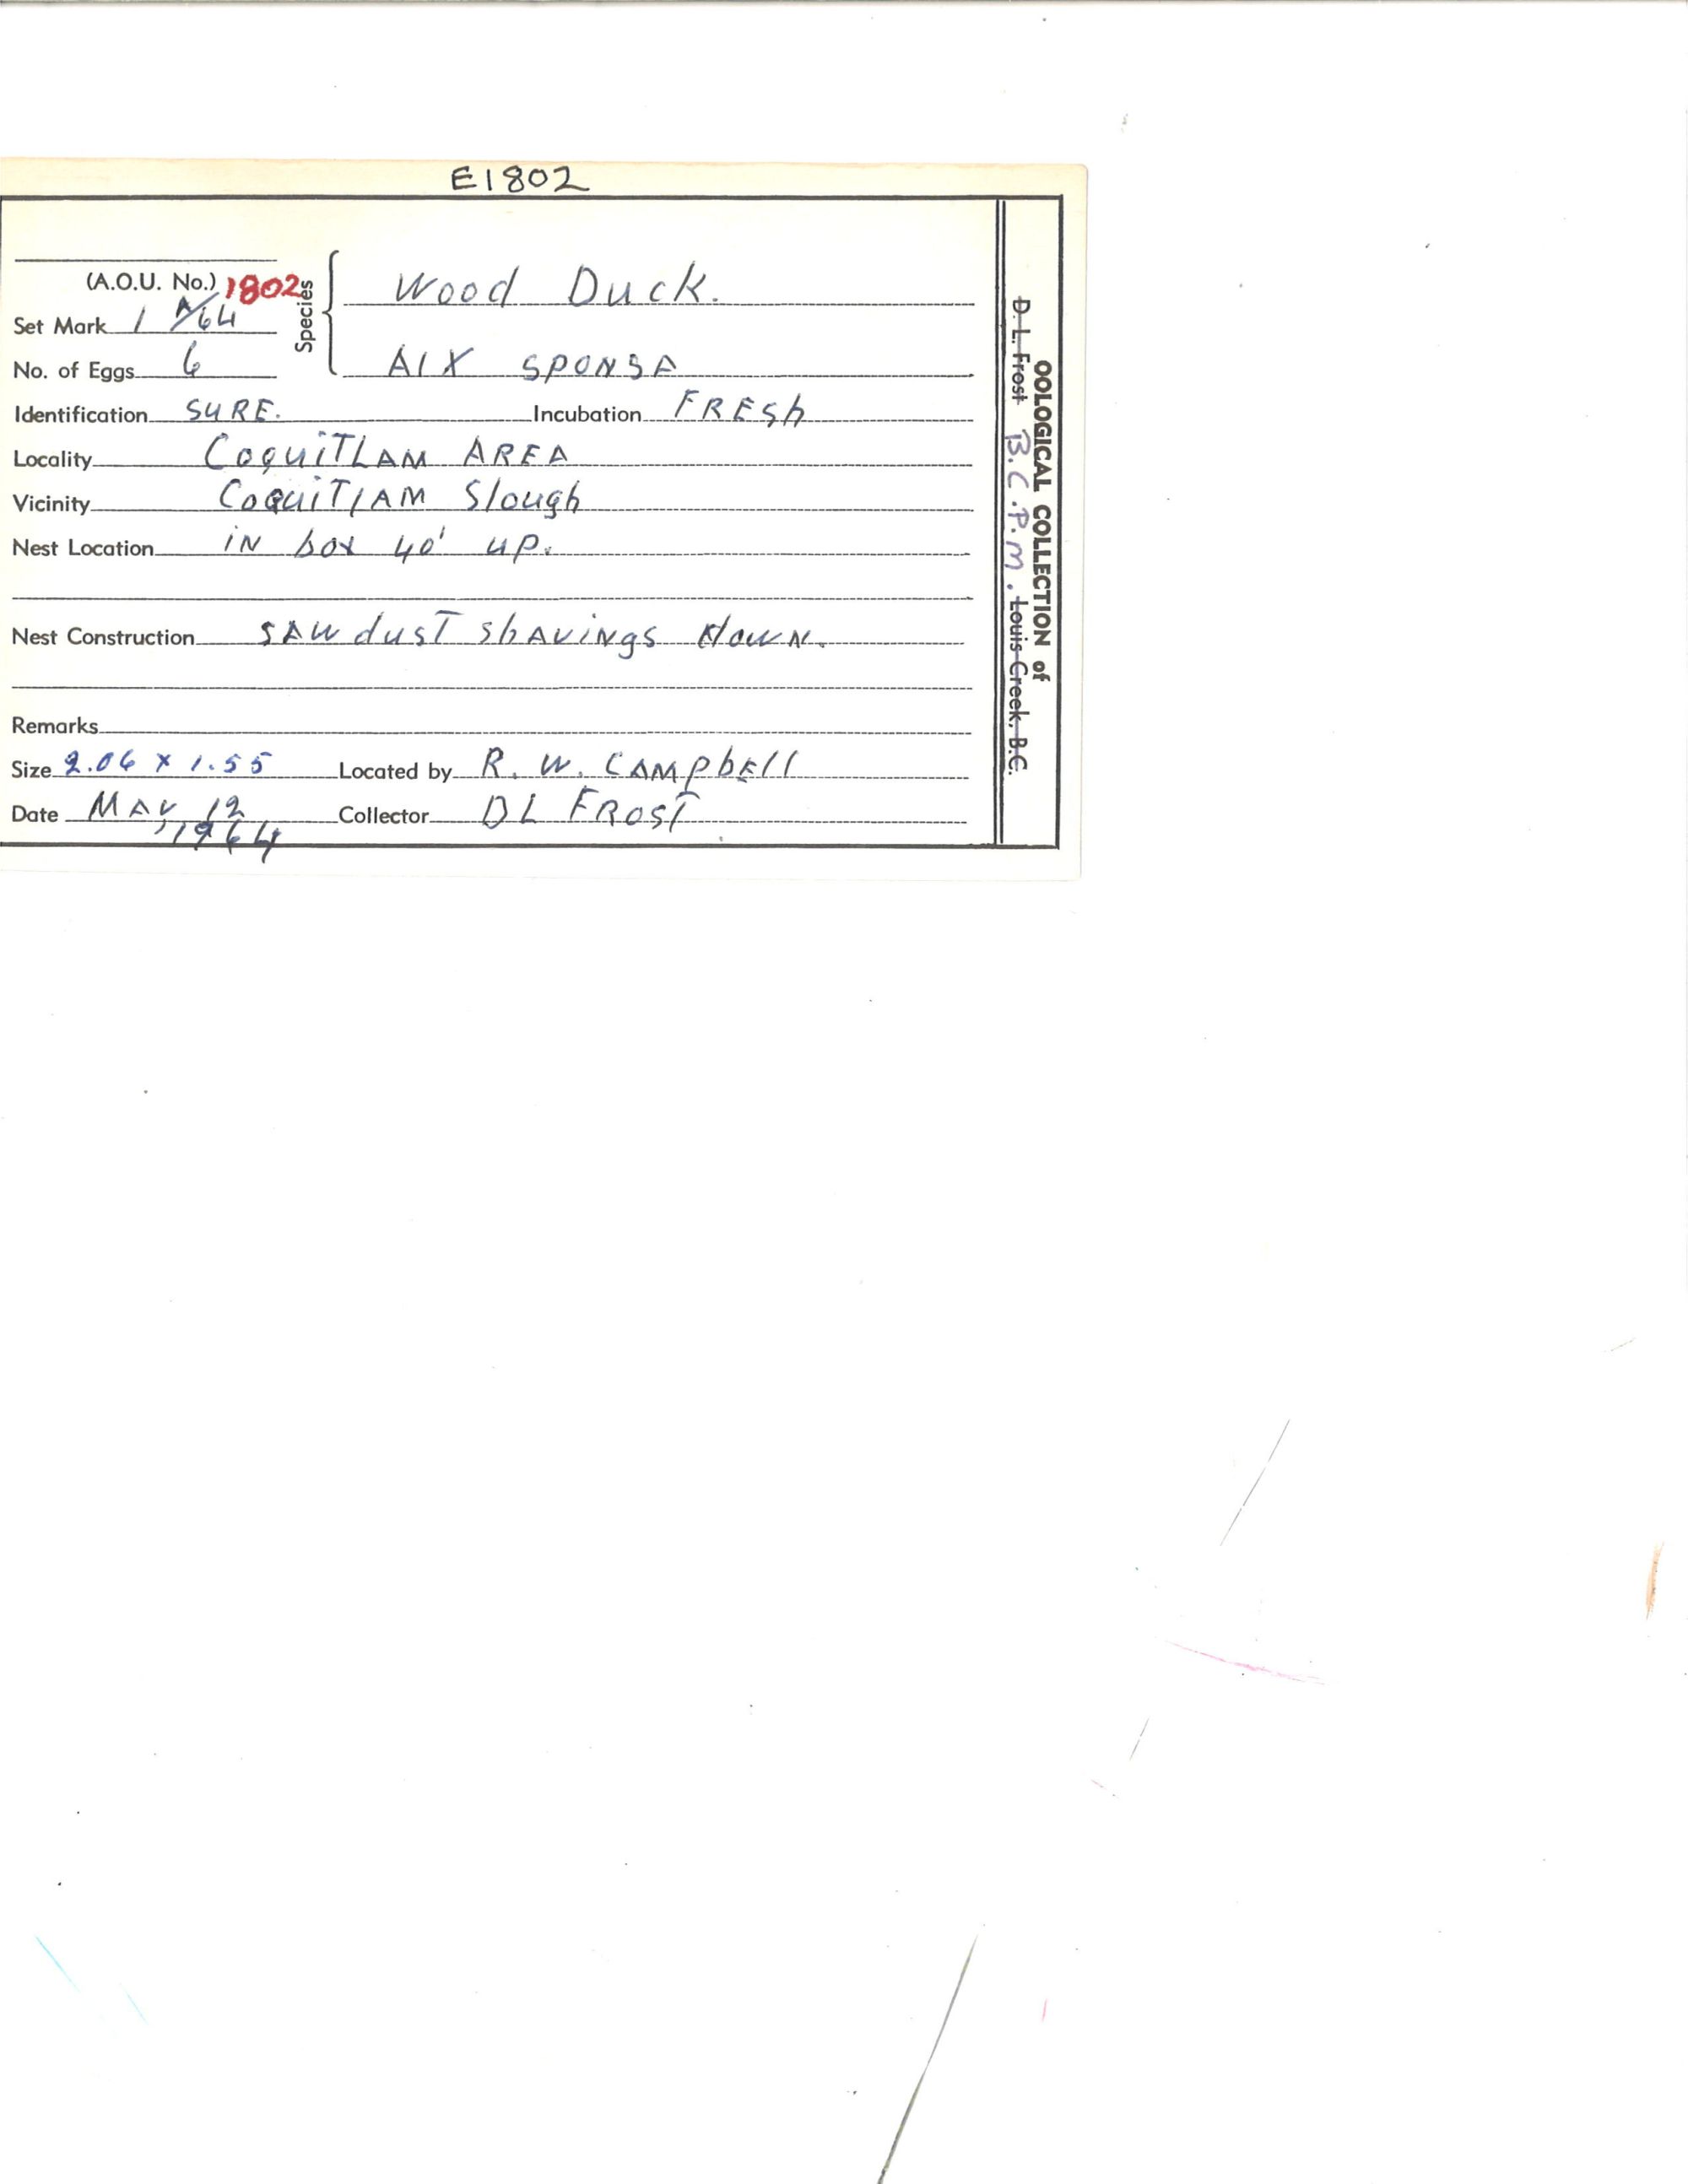 E1802
(A.O.U. No.) 1802
Species
Wood Duck.
Set Mark 1 A/64
No. of Eggs 6
AIX SPONSA
Identification SURE. Incubation FRESh
Locality COQUITLAM AREA
Vicinity COQUITlAM Slough
Nest Location iN box 40' up.
Nest Construction SAWdust ShAViNgs down.
Remarks
Size 2.06 x 1.55 Located by R. W. CAMPbEll
Date MAY 12, 1964 Collector DL FROST
OOLOGICAL COLLECTION of
D. L. Frost B.C.P.M. Louis Creek, B.C.